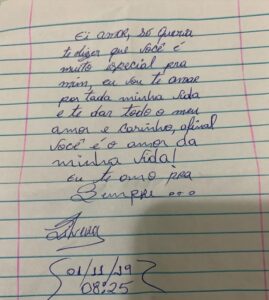 Ei amor, só queria
te dizer que você é
muito especial pra
mim, eu vou te amar
por toda minha vida
e te dar todo o meu
amor e carinho, afinal
você é o amor da
minha vida!
eu te amo pra
Sempre ...
01/11/19
08:25